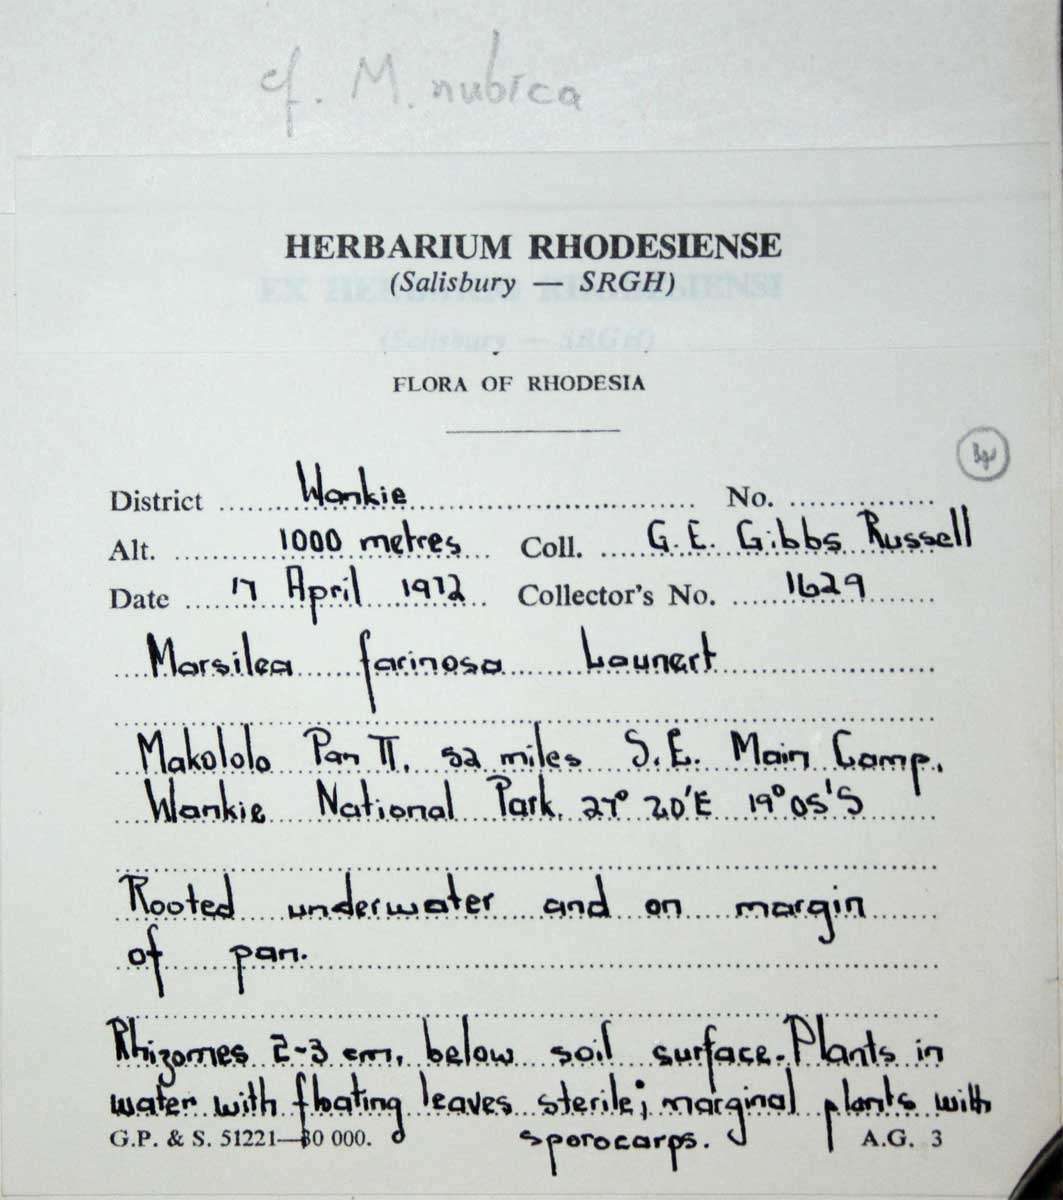 cf. M. nubica
HERBARIUM RHODESIENSE
(Salisbury — SRGH)
FLORA OF RHODESIA
District Wankie No.
Alt. 1000 metres Coll. G.E. Gibbs Russell
Date 17 April 1972 Collector's No. 1629
Marsilea farinosa Launert
Makololo Pan II. 52 miles S.E. Main Camp.
Wankie National Park. 27° 20'E 19° 05'S
Rooted underwater and on margin
of pan.
Rhizomes 2-3 cm. below soil surface. Plants in
water with floating leaves sterile; marginal plants with
sporocarps.
G.P. & S. 51221—30 000. A.G. 3